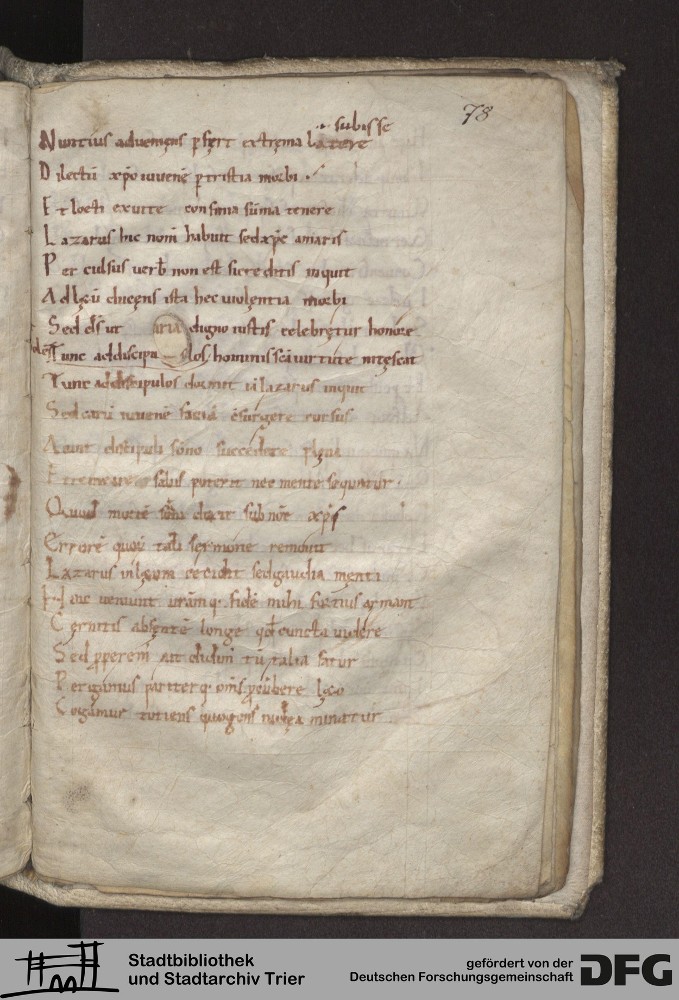 78
subisse
Nuntius adveniens ꝑfert extrema latere
Dilectū xp̄o iuvenē ꝑtristia morbi
Et loeti exutte confinia sūma tenere
Lazarus hic nom̄ habuit sed xp̄e amaris
Perculsus verb̄ non est sic creditis inquit
Ad lęū ducens ista hec violentia morbi
Sed dš ut digno iustis celebretur honore
Tunc addiscipulos hominis sēā virtute nitescat
Tunc addiscipulos dormit lazarus inquit
Sed carū iuvenē faciā ēsurgere rursus
Aiunt discipuli sōno succedere
poterit nec mente sequntur
Quod mortē sōni dixit sub nōe xp̄s
Errorē quoꝝ tali sermone removit
Lazarus in lęum cecidit sed gaudia menti
Hinc veniunt urāmq. fidē mihi fortius armant
Cernitis absentē longe qd̄ cuncta videre
Sed ꝓperem ait didim tū talia fatur
Pergamus pariterq. om̄s ꝓcūbere lęto
Cogamur totiens quoq gens minatur
Stadtbibliothek
und Stadtarchiv Trier
gefördert von der
Deutschen Forschungsgemeinschaft
DFG